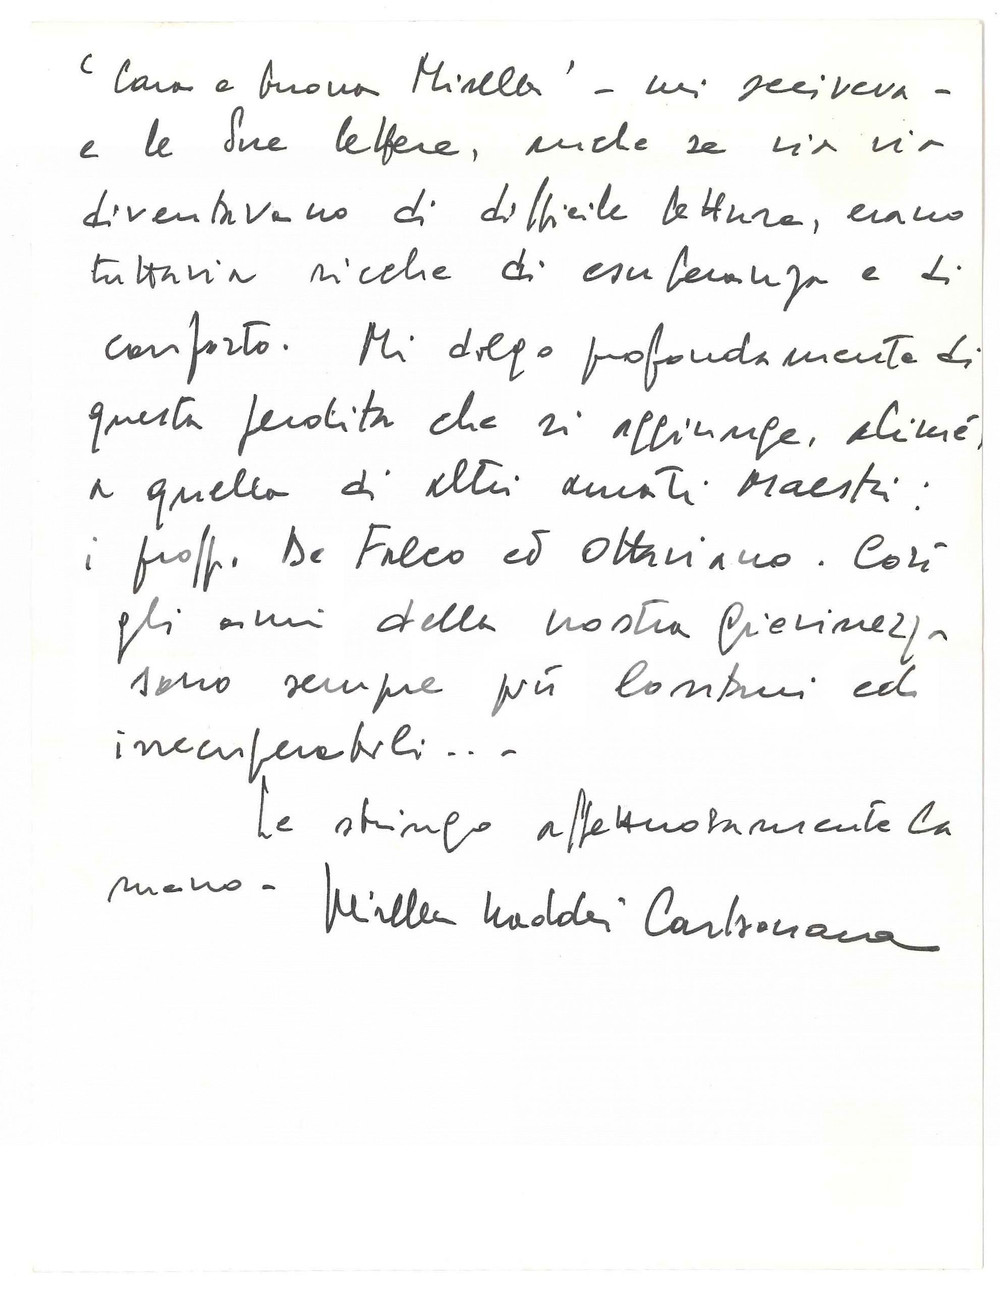 'Cara e buona Mirella' - mi scriveva -
e le Sue lettere, anche se via via
diventavano di difficile lettura, erano
tuttavia ricche di esuberanza e di
conforto. Mi dolgo profondamente di
questa perdita che si aggiunge, ahimé,
a quella di altri amati Maestri:
i proff. De Falco ed Ottaviano. Così
gli anni della nostra giovinezza
sono sempre più lontani ed
irrecuperabili...
Le stringo affettuosamente la
mano - Mirella Naddei Carbonara